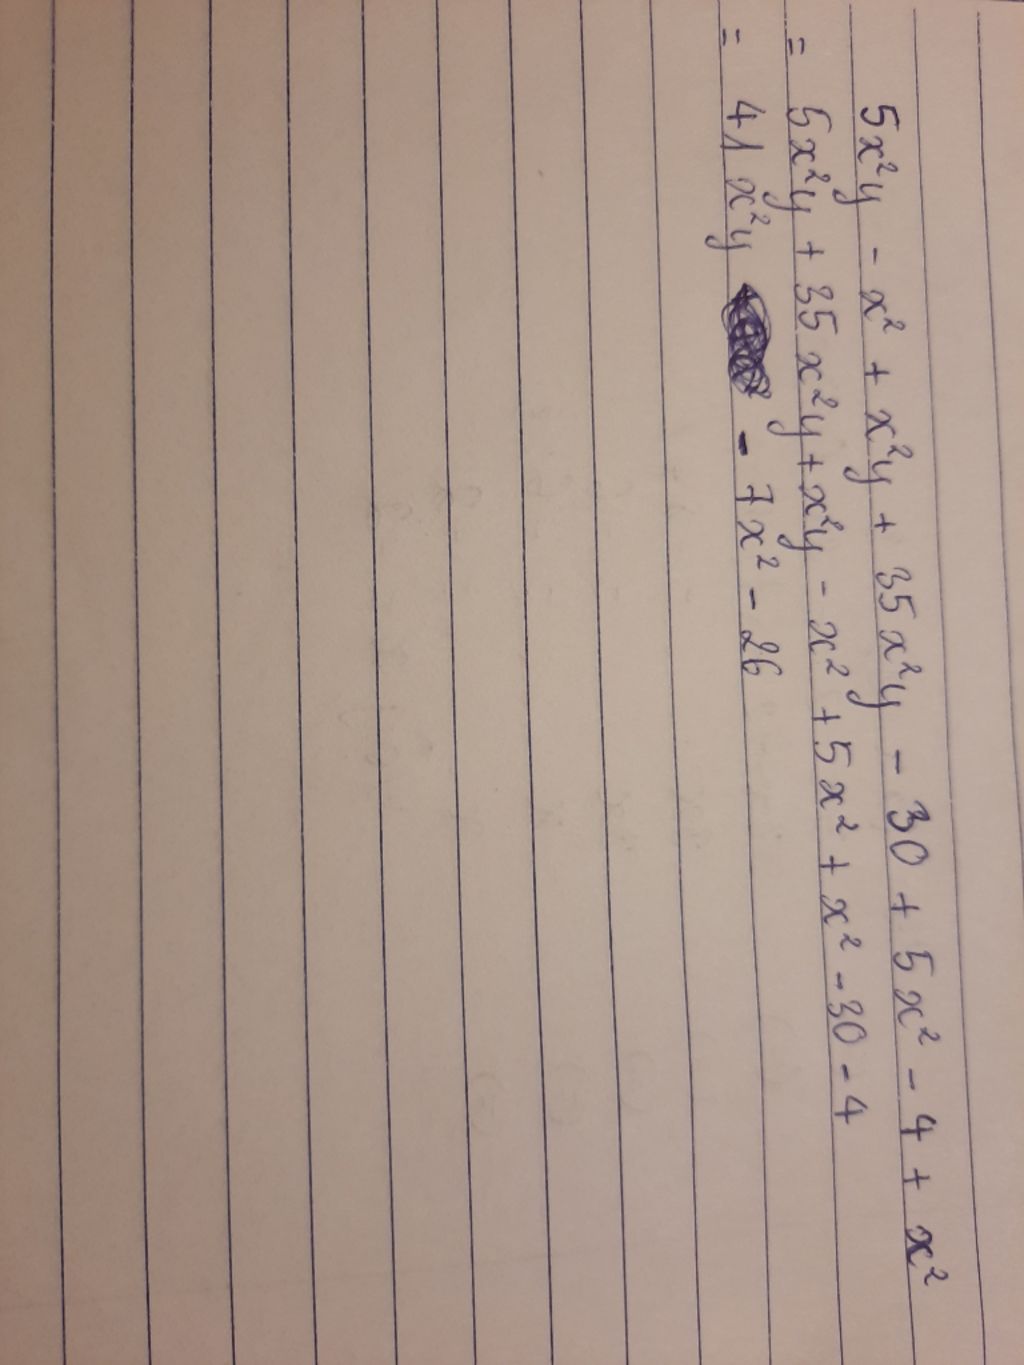 5x²y - x² + x²y + 35x²y - 30 + 5x² - 4 + x²
= 5x²y + 35x²y + x²y - x² + 5x² + x² - 30 - 4
= 41x²y - 7x² - 26